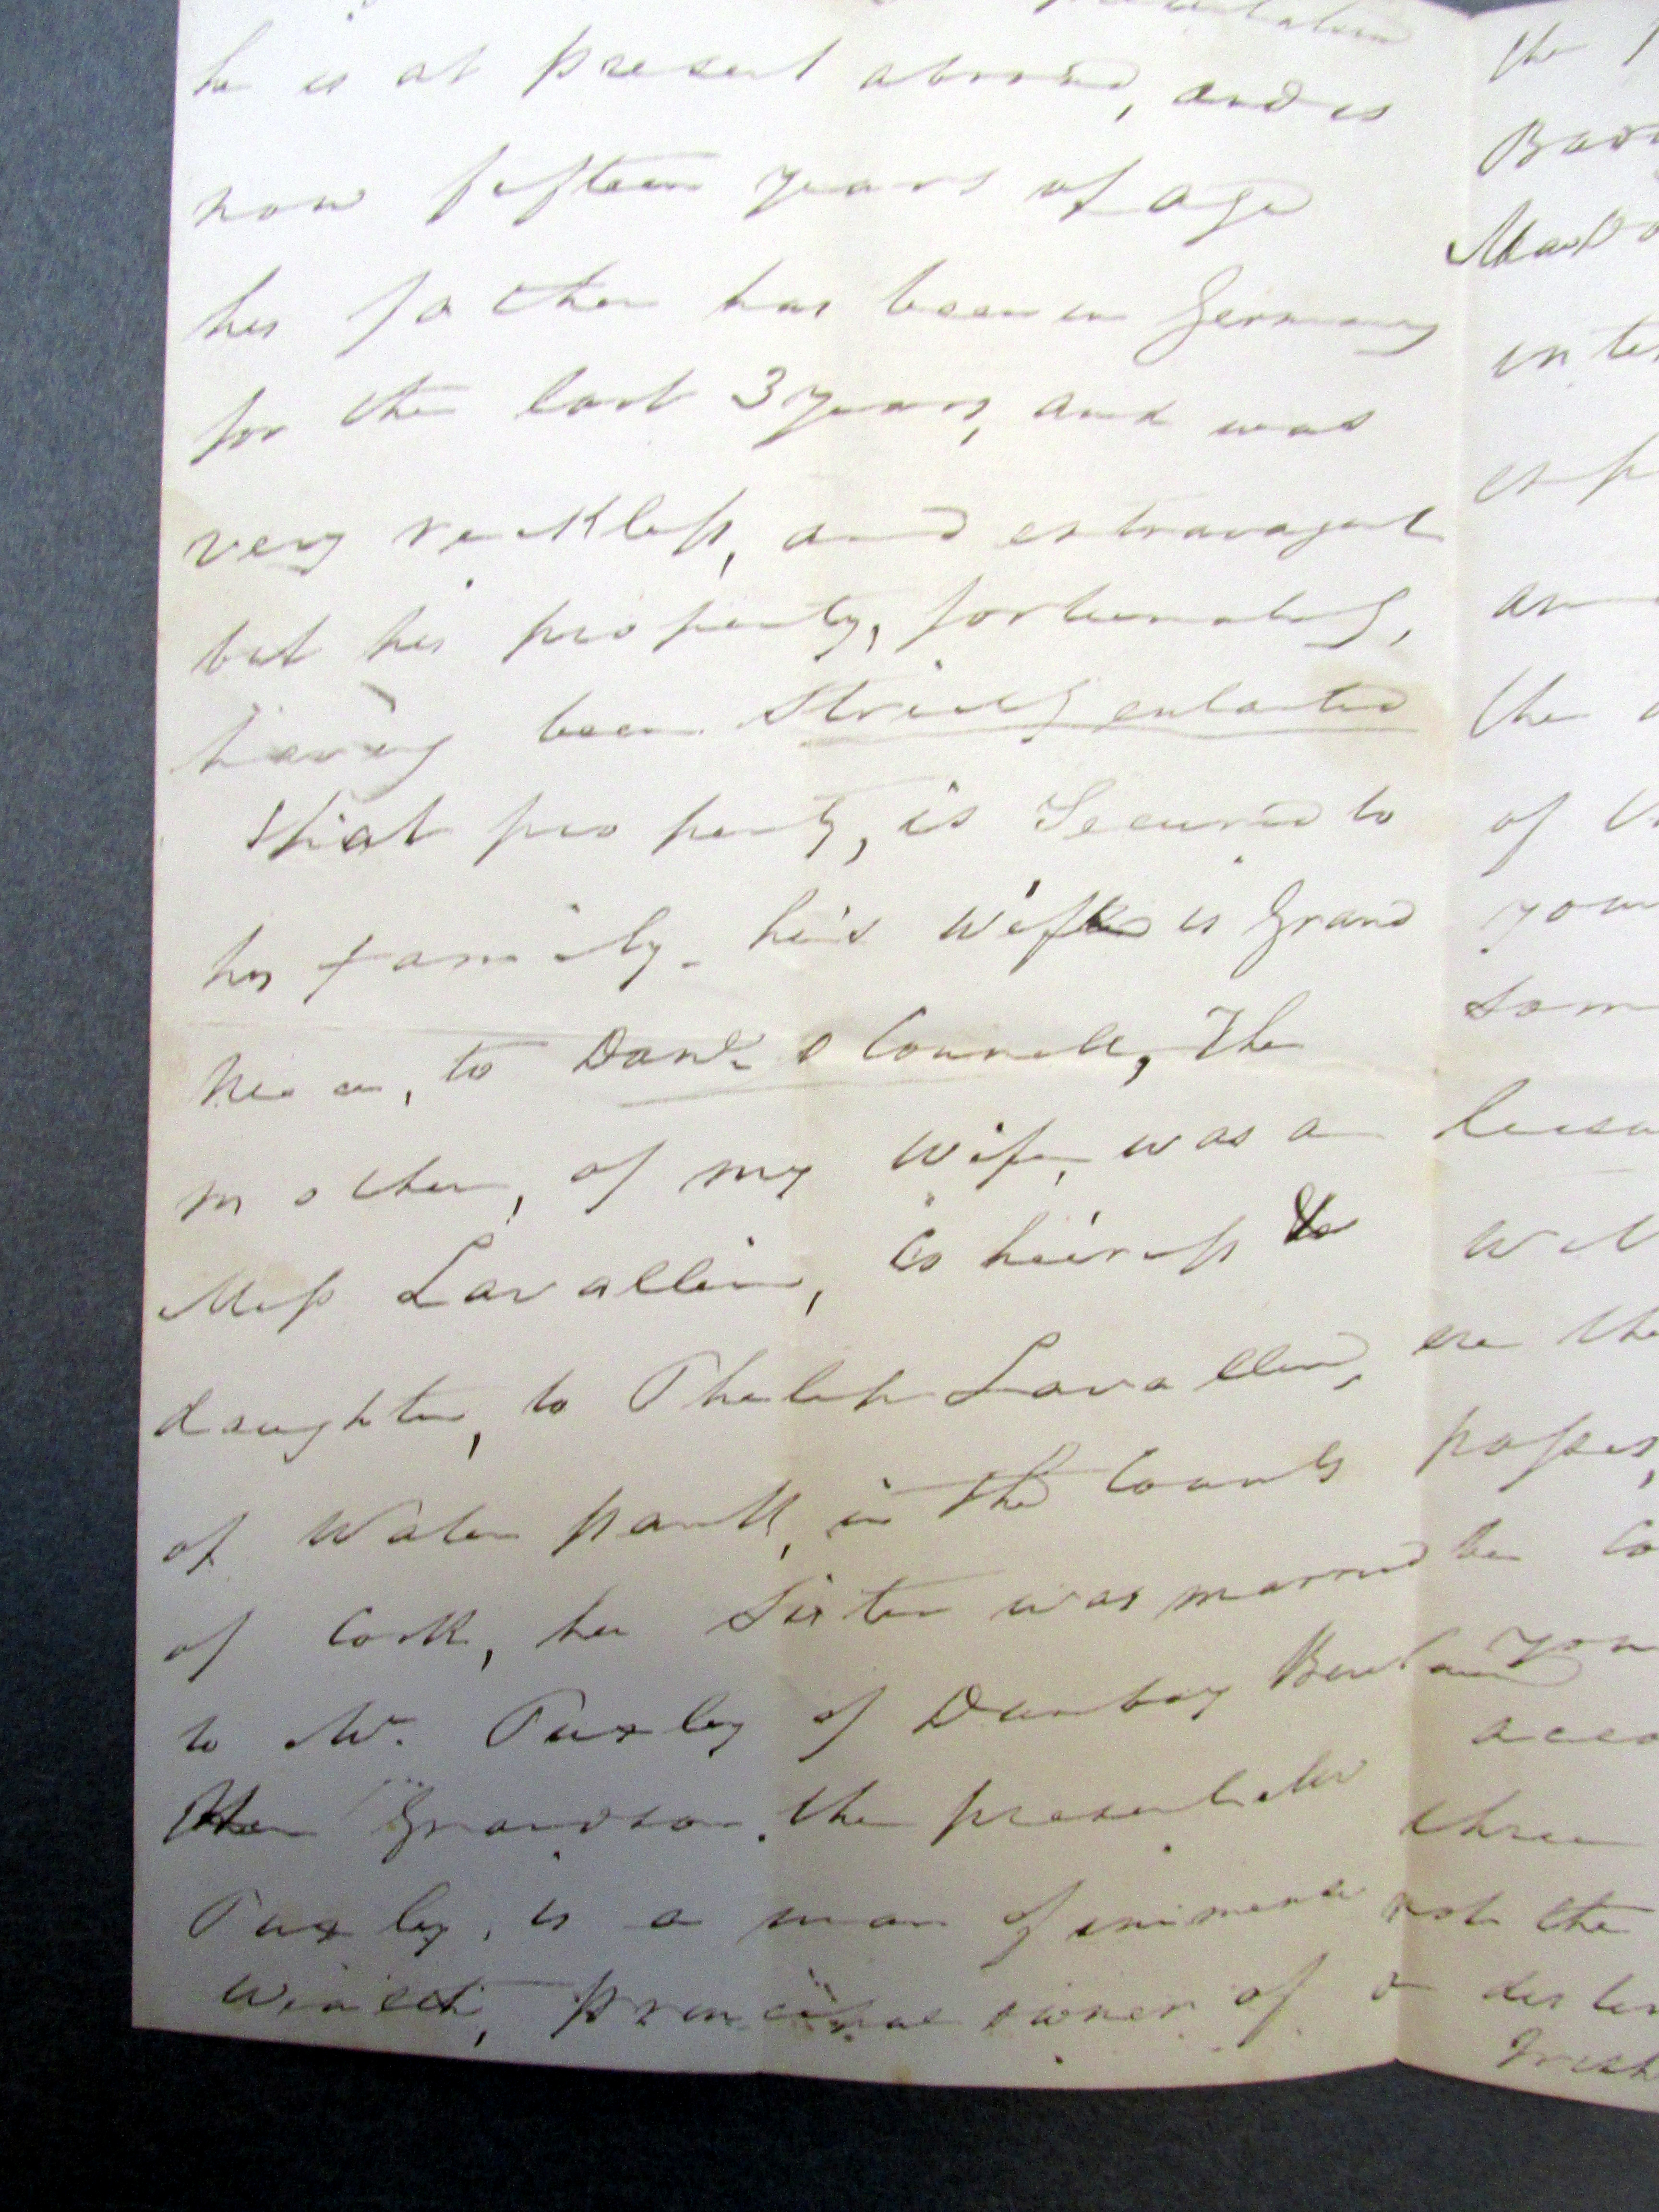 he is at present abroad, and is
now fifteen years of age
his father has been in Germany
for the last 3 years, and was
very reckless, and extravagant
but his property, fortunately,
having been strictly entailed
that property, is Secured to
his family. his wife is Grand
niece, to Danl. O Connell, The
mother, of my wife, was a
Miss Lavallin, Co heiress to
daughter, to Philip Lavallin,
of Water park, in the County
of Cork, her Sister was married
to Mr. Puxley of Dunboy
Her Grandson. the present Mr
Puxley, is a man of immense
wealth, principal owner of
the
Bar
inte
esp
an
the
of
your
som
will
are the
posses
be co
you
acco
three
not the